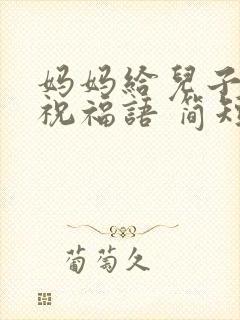 妈妈給兒子
祝福語 简短
葡萄久